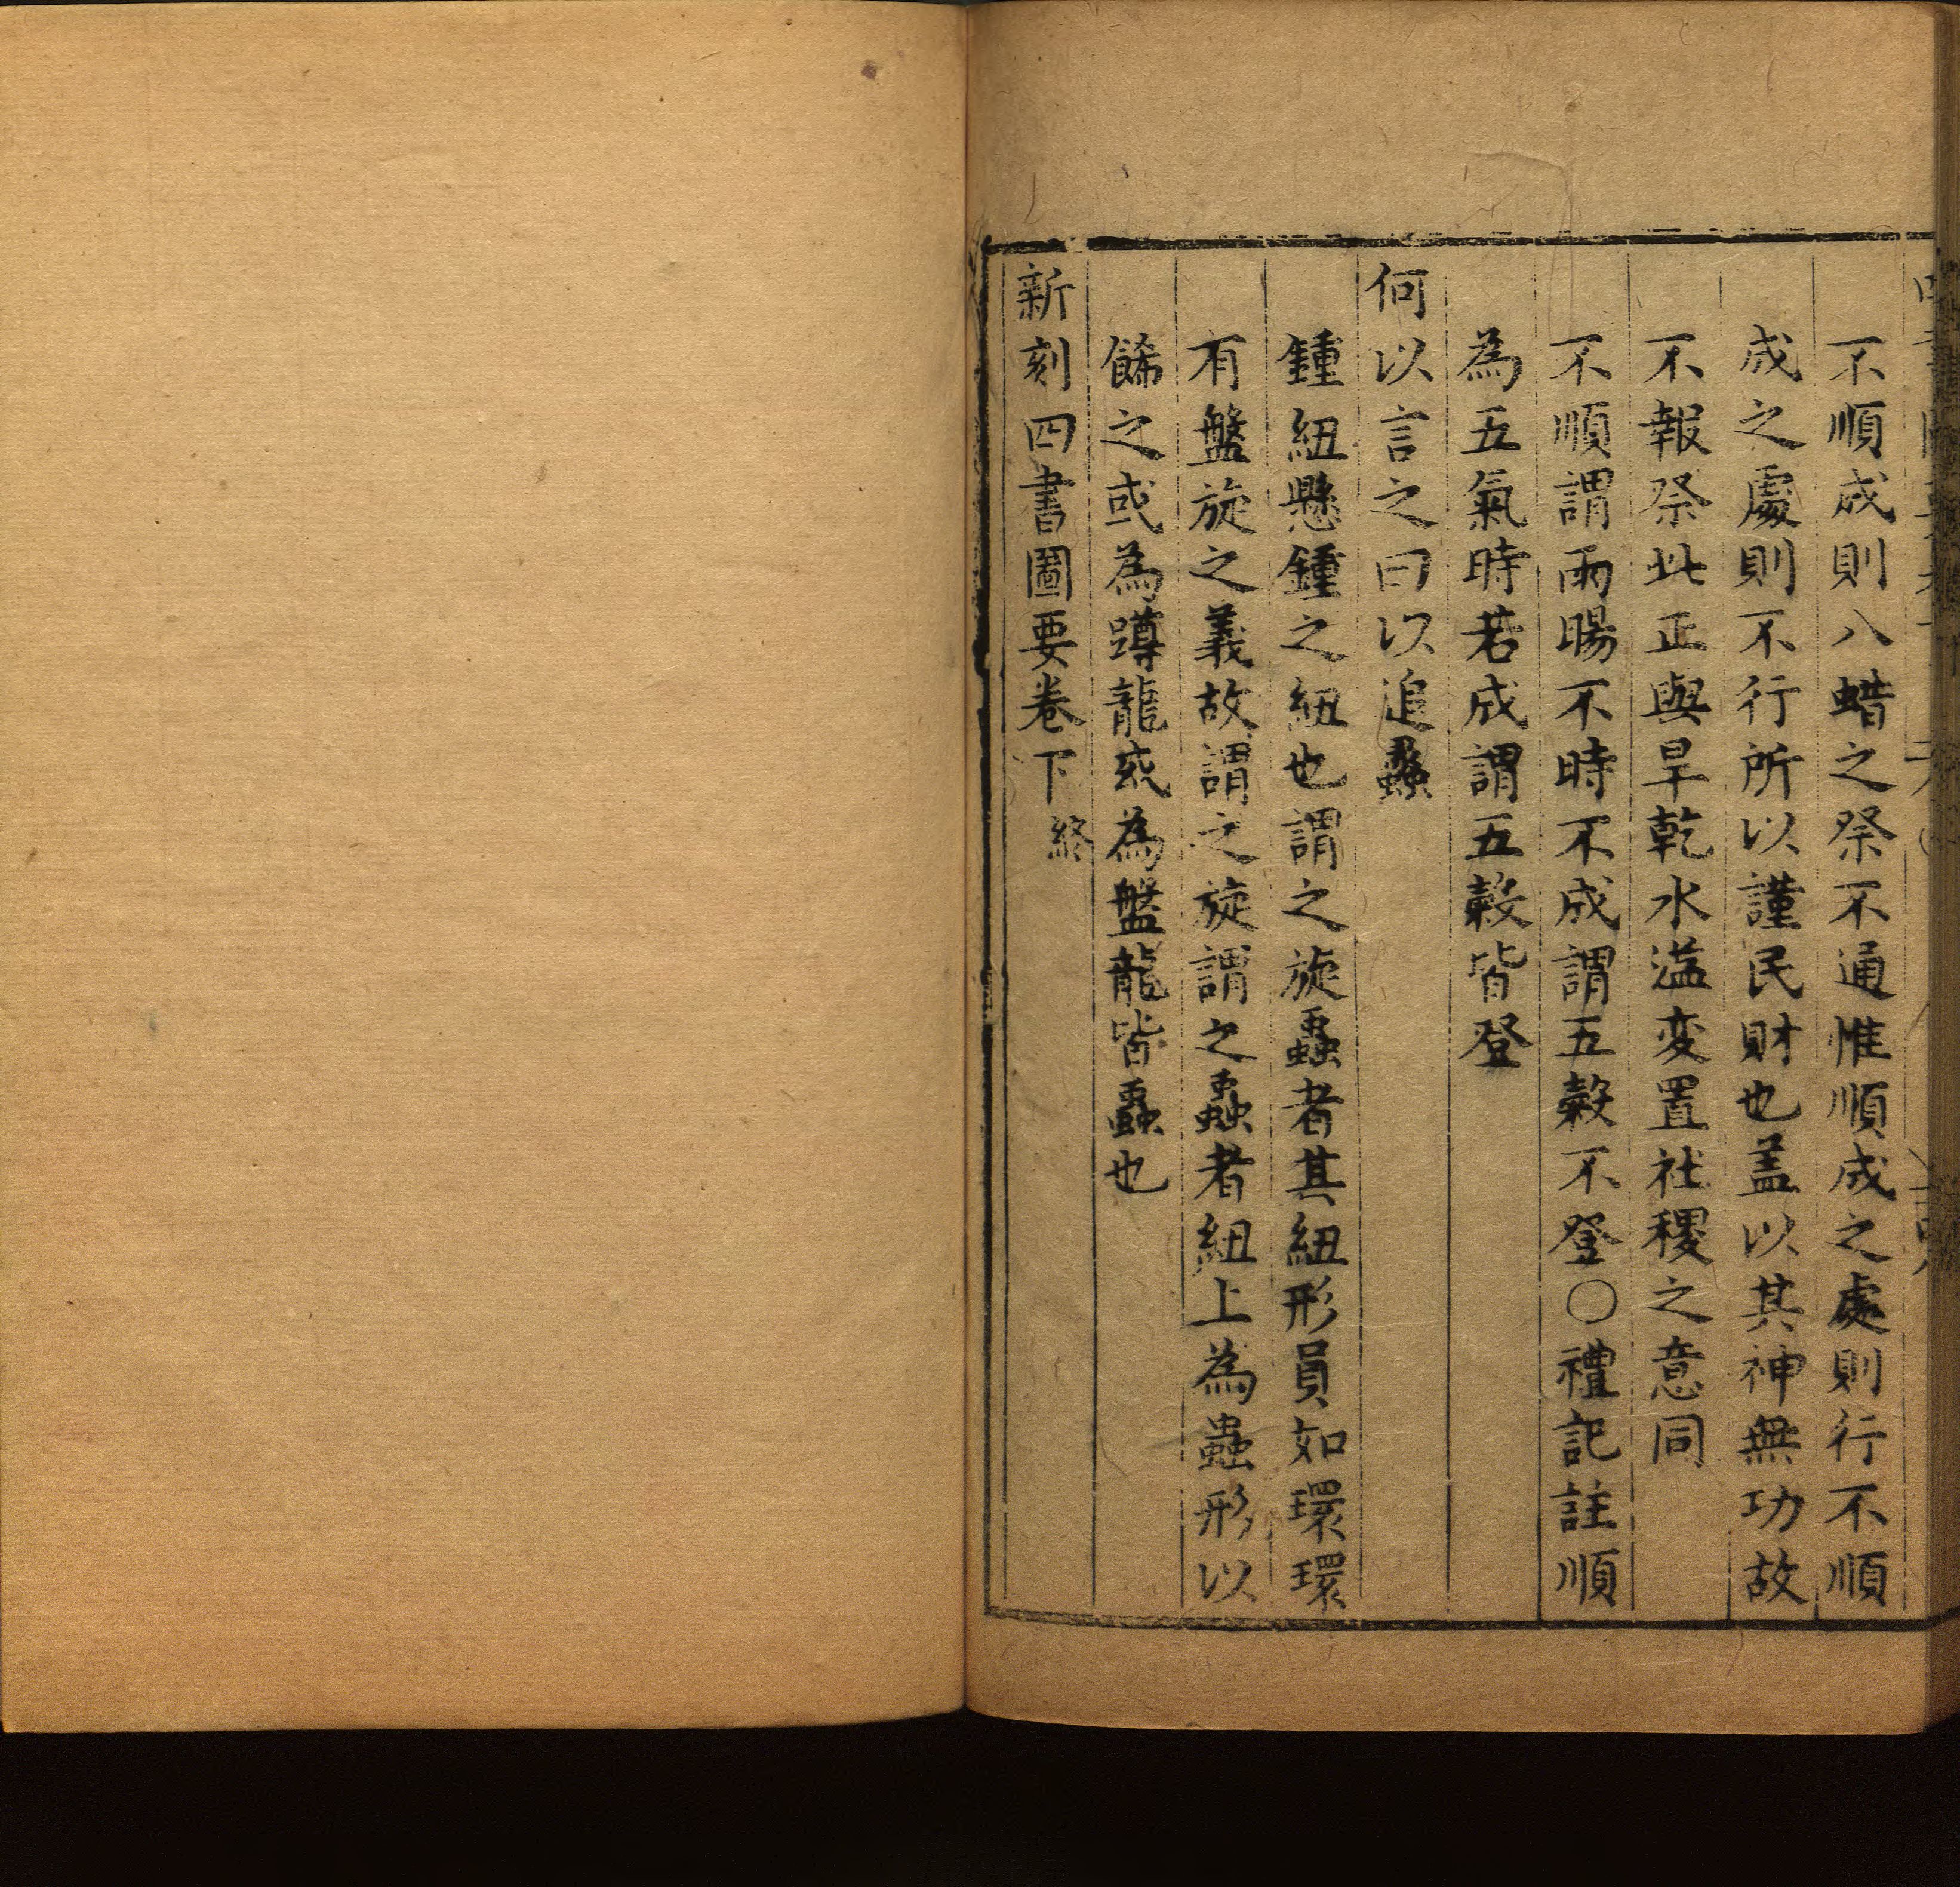 不順成則八蜡之祭不通惟順成之處則行不順
成之處則不行所以謹民財也盖以其神無功故
不報祭此正與旱乾水溢変置社稷之意同
不順謂雨暘不時不成謂五穀不登〇禮記註順
為五氣時若成謂五穀皆登
何以言之曰以追蠡
鍾紐懸鍾之紐也謂之旋蟲者其紐形員如環環
有盤旋之義故謂之旋謂之蟲者紐上為蟲形以
餙之或為蹲龍或為盤龍皆蟲也
新刻四書圖要卷下終